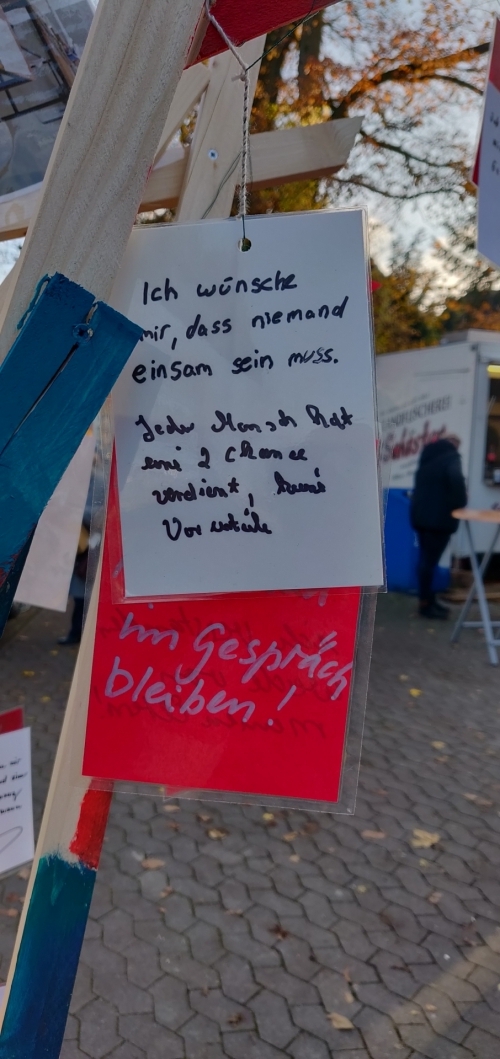 Ich wünsche
mir, dass niemand
einsam sein muss.
Jeder Mensch hat
eine 2 Chance
verdient, keine
Vorurteile
im Gespräch
bleiben!